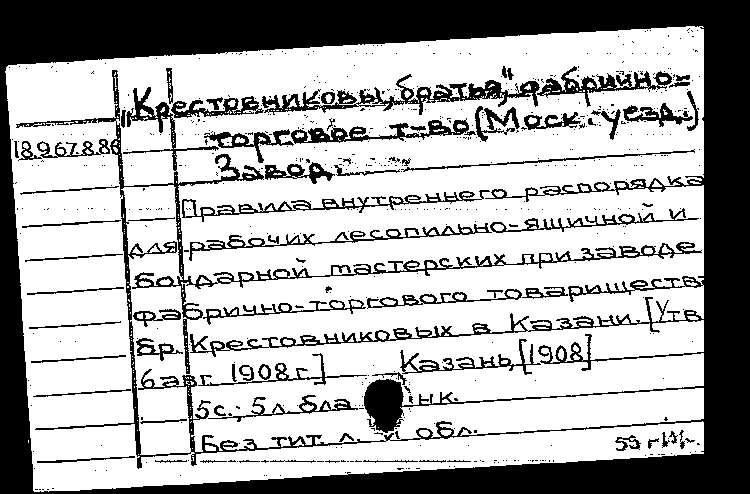 „Крестовниковы, братья," фабрично-
торговое т-во (Моск. уезд.).
18.967.8.86
Завод.
Правила внутреннего распорядка
для рабочих лесопильно-ящичной и
бондарной мастерских при заводе
фабрично-торгового товарищества
бр. Крестовниковых в Казани. [Утв
6 авг. 1908 г.] Казань, [1908]
5 с.; 5 л. бла нк.
Без тит. л. и обл.